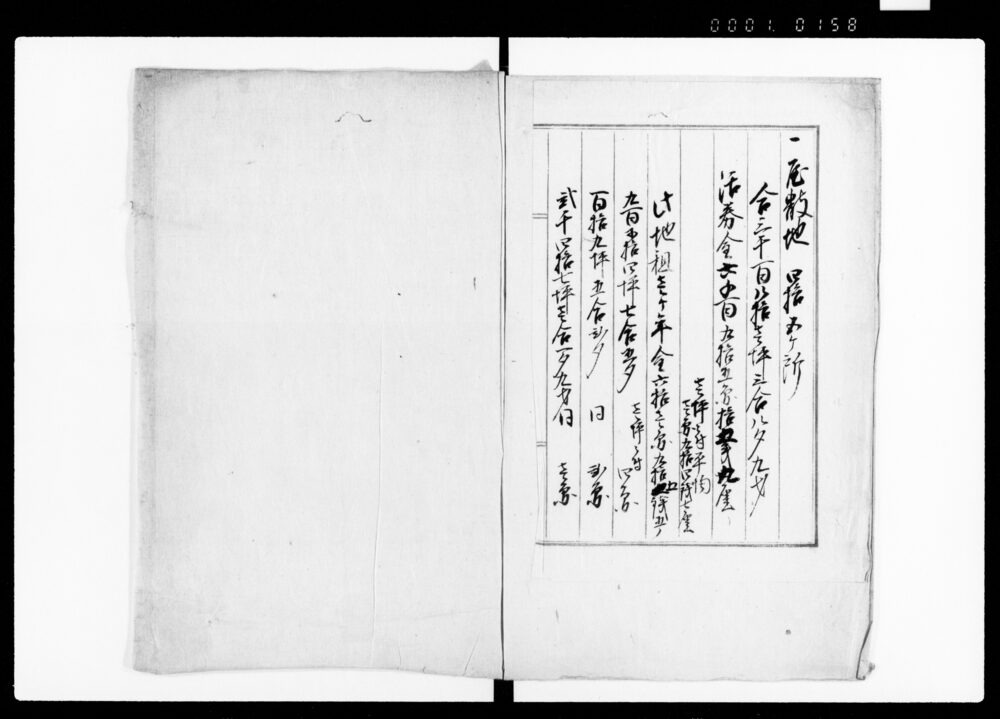 一 屋敷地 四拾五ヶ所
合三千百八拾壱坪三合八夕九才
沽券金六千百九拾五円拾五銭九厘
壱坪ニ付平均
壱円九拾四銭七厘
此地租壱ヶ年金六拾壱円九拾五銭五厘
九百五拾四坪七合五夕 壱坪ニ付 四円
百拾九坪五合弐夕 同 弐円
弐千四拾七坪壱合一夕九才 同 壱円
0001 0158